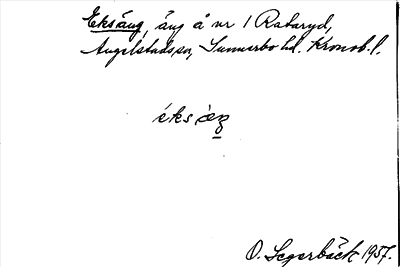 Eksäng, äng å nr 1 Rataryd,
Angelstads sn, Sunnerbo hd. Kronob. l.
éks
O. Segerbäck 1957.